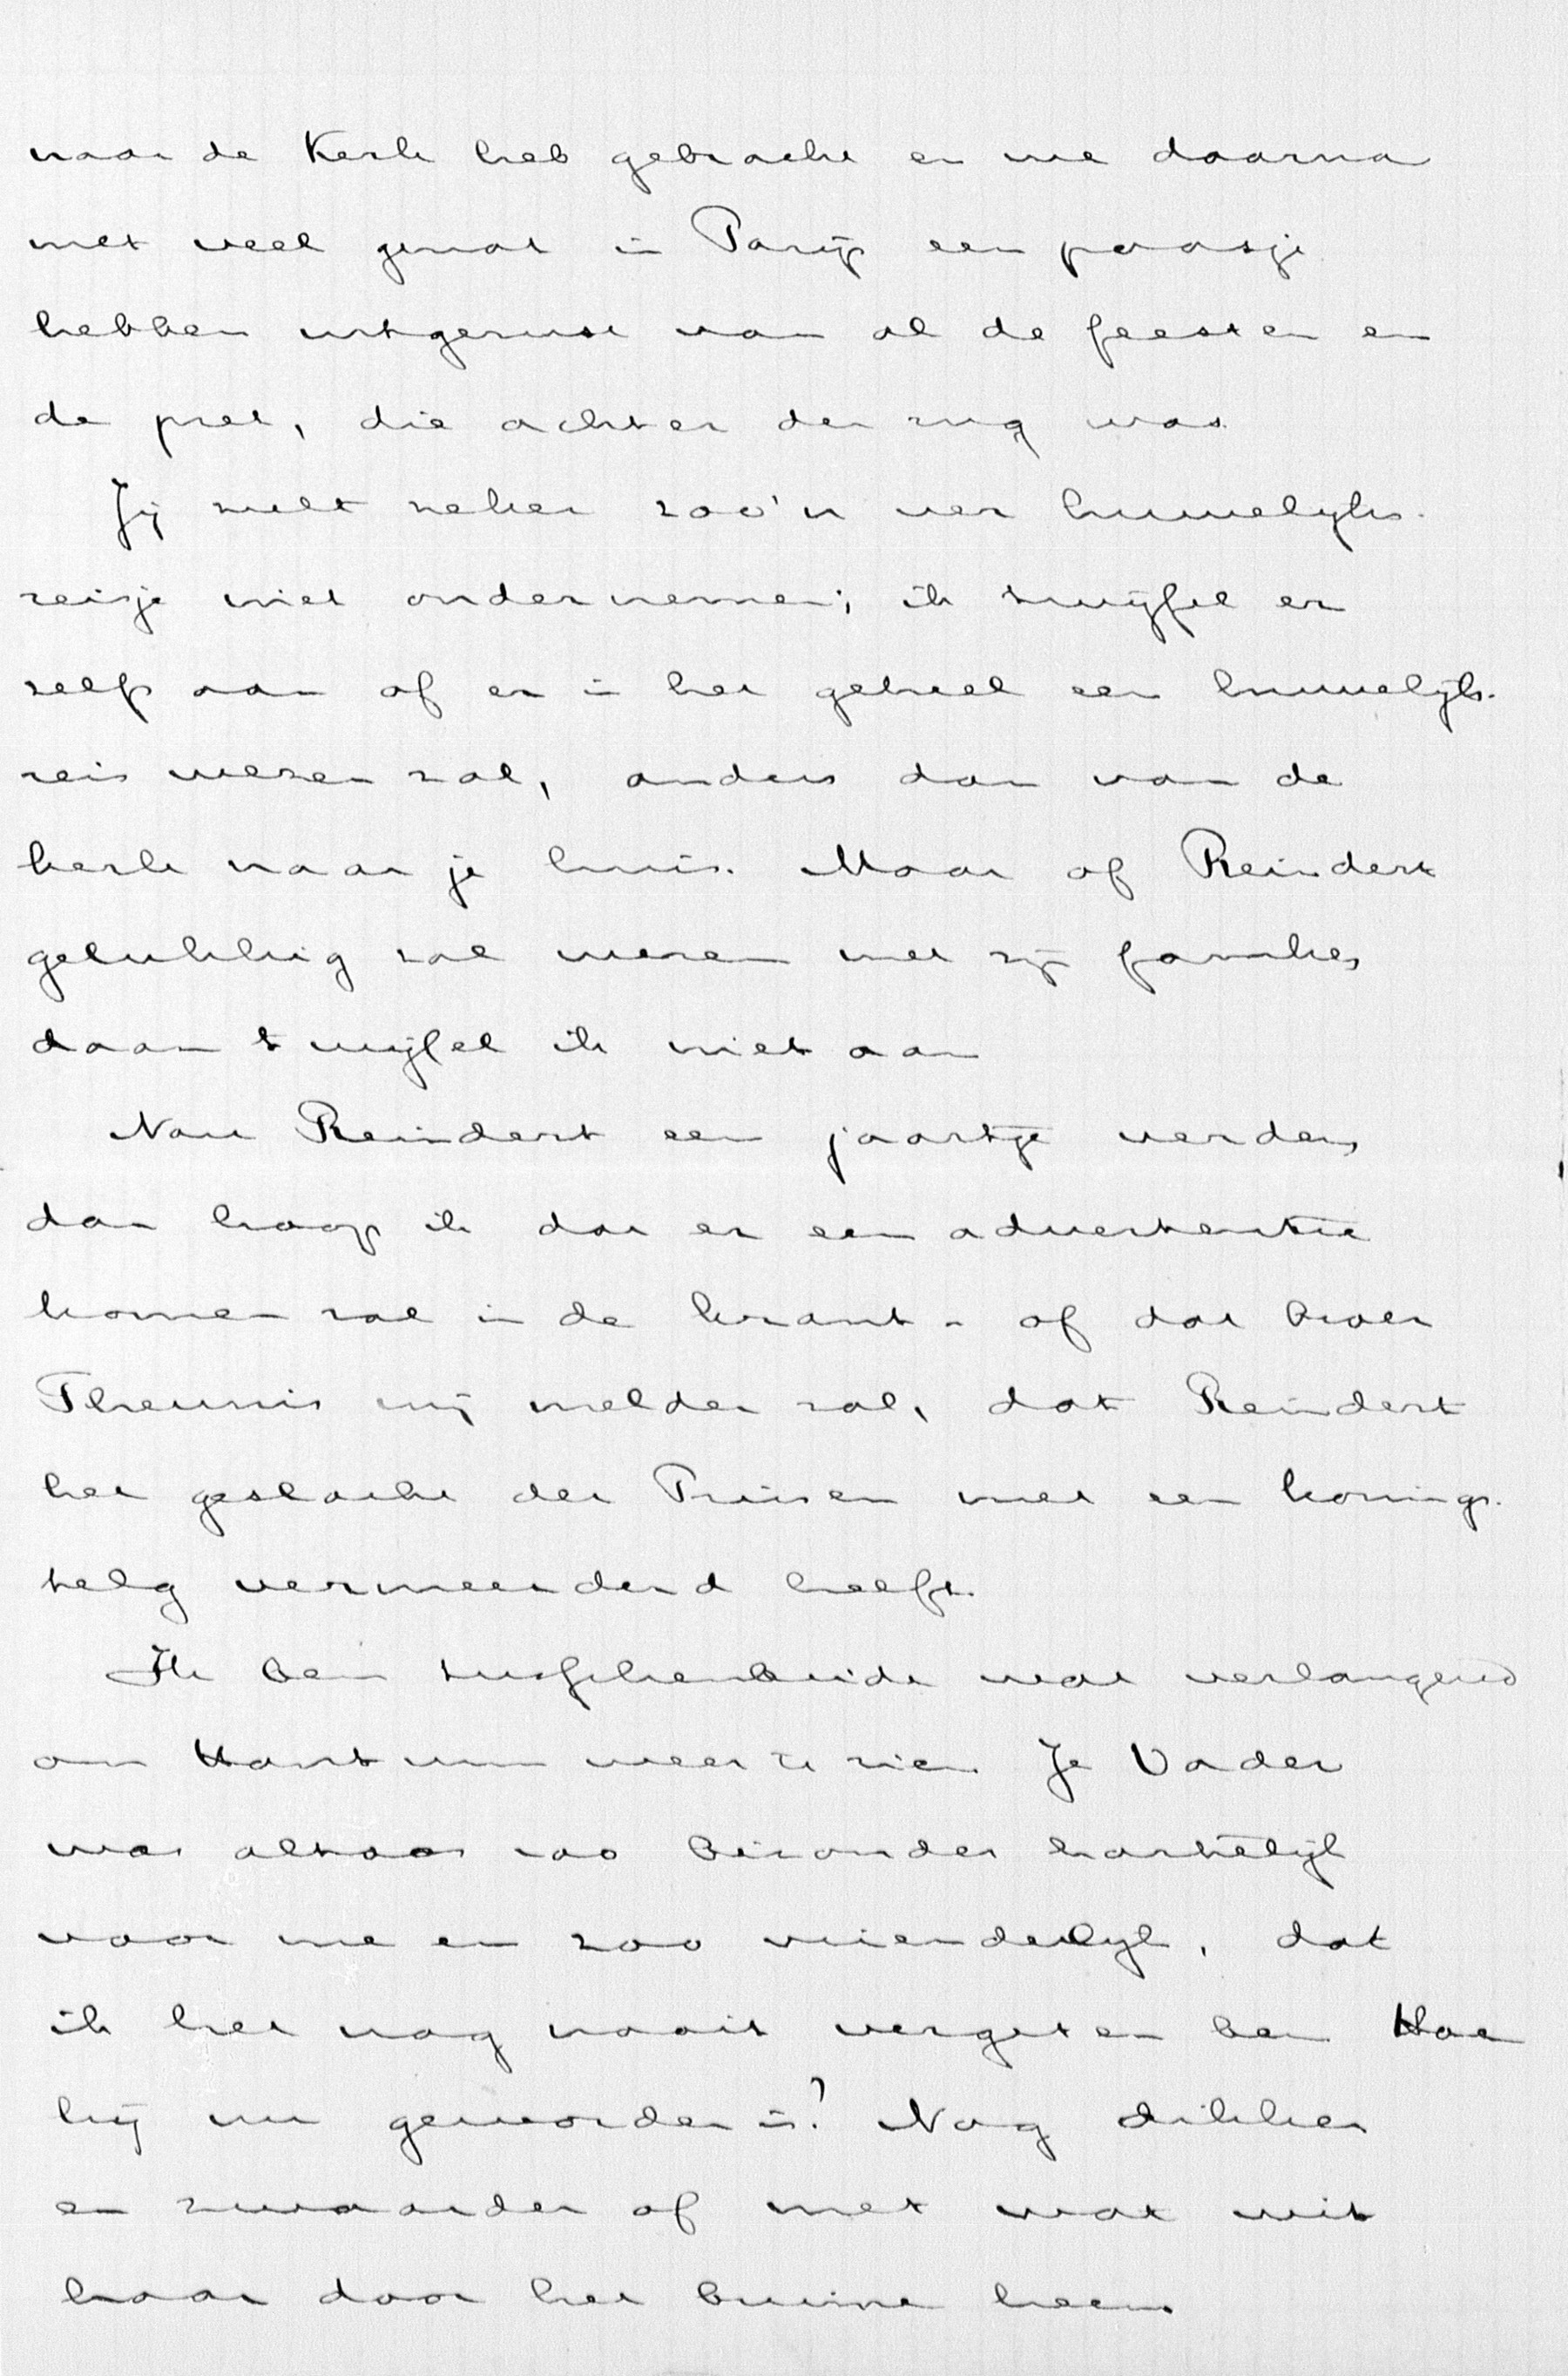 naar de Kerk heb gebracht en we daarna
met veel genot in Parijs een poosje
hebben uitgerust van al de feesten en
de pret, die achter den rug was.
Jij zult zeker zoo'n ver huwelijks-
reisje niet ondernemen; ik twijfel er
zelfs aan of er in het geheel een huwelijks-
reis wezen zal, anders dan van de
kerk naar je huis. Maar of Reindert
gelukkig zal wezen met zijn famke,
daar twijfel ik niet aan
Nou Reindert een jaartje verder,
dan hoop ik dat er een advertentie
komen zal in de krant - of dat broer
Theunis mij melden zal, dat Reindert
het geslacht der Prinsen met een konings-
telg vermeerderd heeft.
Ik ben tusschenbeide wat verlangend
om Hantum weer te zien. Je Vader
was altoos zoo bizonder hartelijk
voor me en zoo vriendelijk, dat
ik het nog nooit vergeten ben Hoe
hij nu geworden is? Nog dikker
en zwaarder of met wat wit
haar door het bruine heen.